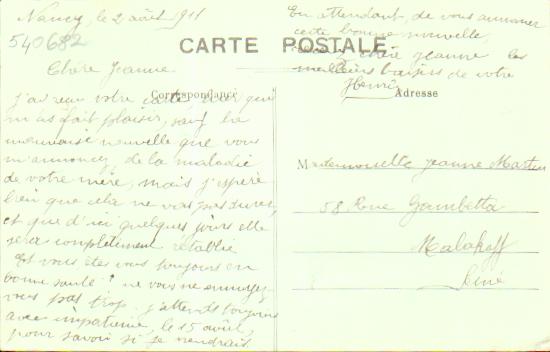 Nancy, le 2 août 1911
540682
CARTE POSTALE
Chère Jeanne
Correspondance
j'ai reçu votre carte, ce qui
m'as fait plaisir, sauf la
mauvaise nouvelle que vous
m'annoncez, de la maladie
de votre mère, mais j'espère
bien que cela ne vas pas durer,
et que d'ici quelques jours elle
sera complètement rétablie
Et vous êtes vous toujours en
bonne santé? ne vous ennuyez
vous pas trop. j'attends toujours
avec impatience, le 15 août,
pour savoir si je viendrais.
En attendant, de vous annoncer
cette bonne nouvelle
chère Jeanne les
meilleurs baisers de votre
Henri
Adresse
Mademoiselle Jeanne Martin
58 Rue Gambetta
Malakoff
Seine